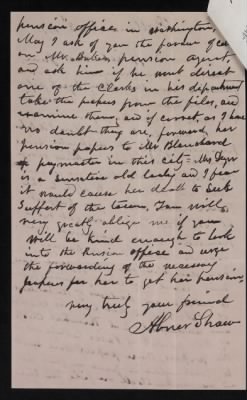 pension office in Washington,
May I ask of you the favour to call
on Mr. pension agent,
and ask him if he wont direct
one of the Clerks in his department
take the papers from the files, and
examine them, and if correct as I have
no doubt they are, forward her
pension papers to Mr Blanchard
paymaster in this city. Mrs
is a sensitive old lady and I fear
it would cause her death to seek
support of the town. You will
very greatly oblige me if you
will be kind enough to look
into the Pension office and urge
the forwarding of the necessary
papers for her to get her pension,
very truly your friend
Abner Shaw